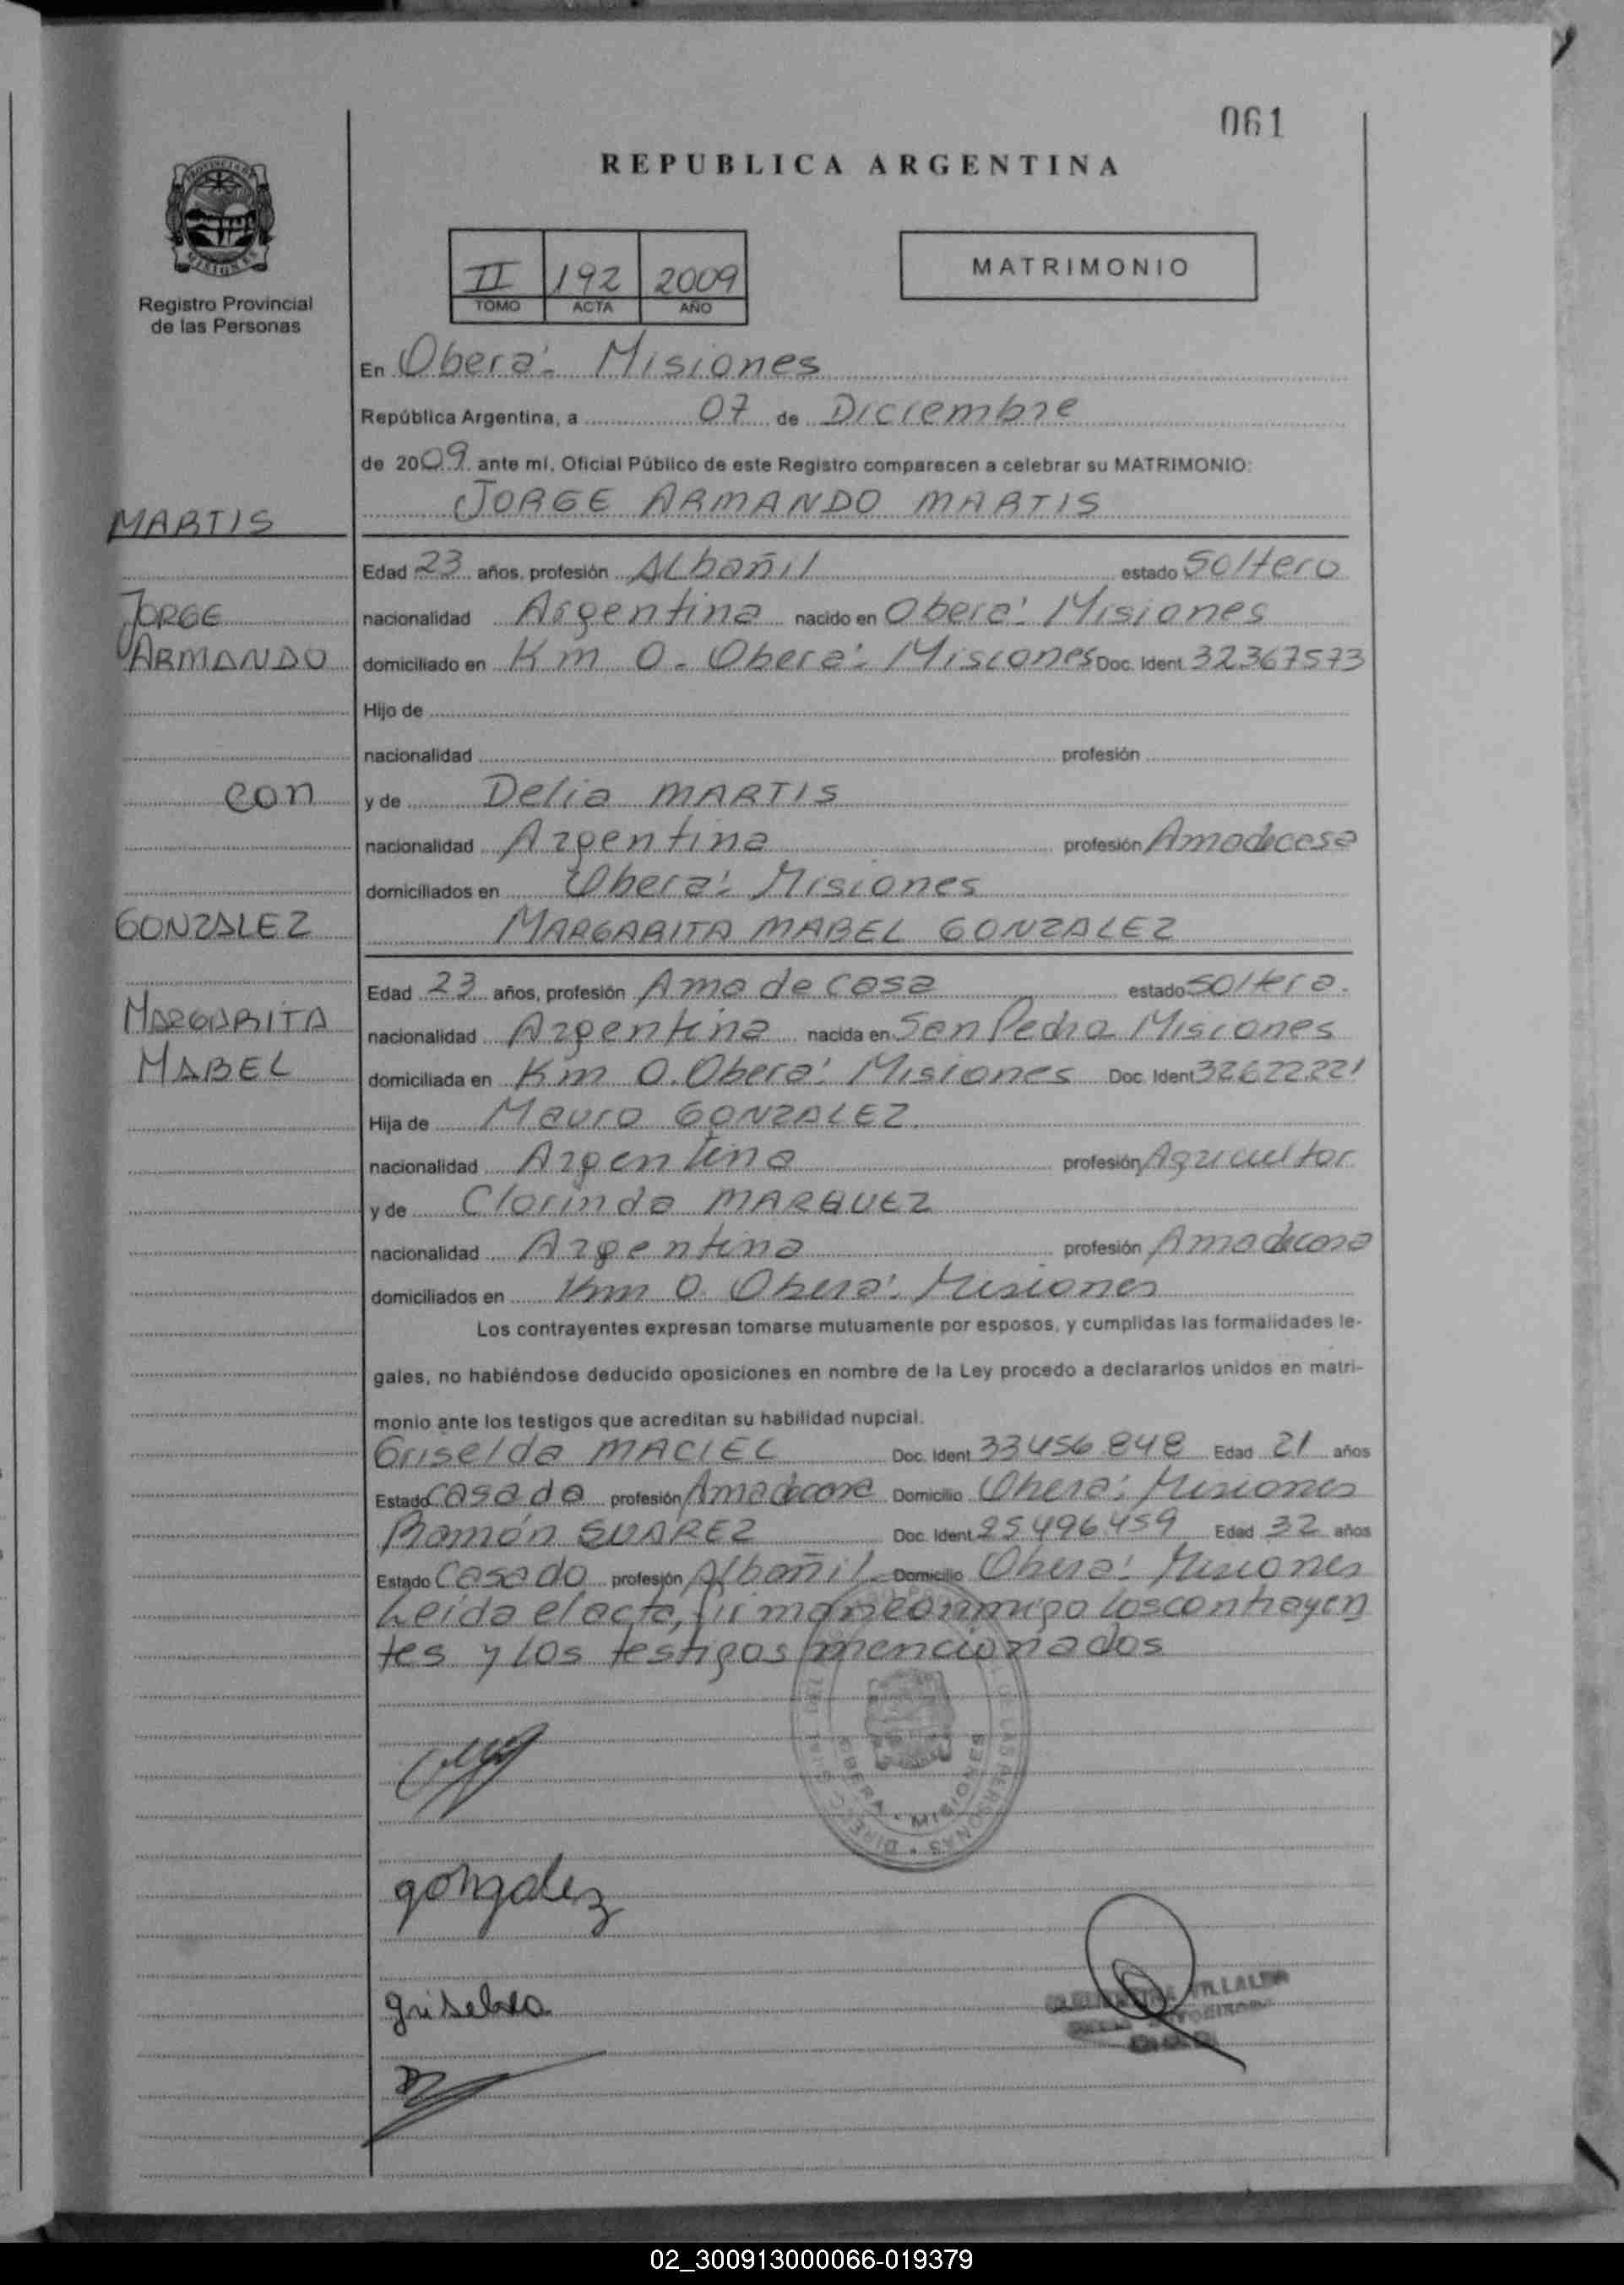 061
REPUBLICA ARGENTINA
PROVINCIA DE
MISIONES
Registro Provincial
de las Personas
II 192 2009
TOMO ACTA AÑO
MATRIMONIO
En Oberá: Misiones
República Argentina, a 07 de Diciembre
de 2009 ante mí, Oficial Público de este Registro comparecen a celebrar su MATRIMONIO:
MARTIS JORGE ARMANDO MARTIS
Edad 23 años, profesión Albañil estado Soltero
JORGE nacionalidad Argentina nacido en Oberá: Misiones
ARMANDO domiciliado en Km 0. Oberá: Misiones Doc. Ident. 32367573
Hijo de
nacionalidad profesión
con y de Delia MARTIS
nacionalidad Argentina profesión Amadecasa
domiciliados en Oberá: Misiones
GONZALEZ MARGARITA MABEL GONZALEZ
Edad 23 años, profesión Ama de casa estado soltera.
MARGARITA nacionalidad Argentina nacida en San Pedro Misiones
MABEL domiciliada en Km 0. Oberá: Misiones Doc. Ident 32.622.221
Hija de Mauro GONZALEZ
nacionalidad Argentina profesión Agricultor
y de Clorinda MARQUEZ
nacionalidad Argentina profesión Amadecasa
domiciliados en Km 0. Oberá: Misiones
Los contrayentes expresan tomarse mutuamente por esposos, y cumplidas las formalidades le-
gales, no habiéndose deducido oposiciones en nombre de la Ley procedo a declararlos unidos en matri-
monio ante los testigos que acreditan su habilidad nupcial.
Griselda MACIEL Doc. Ident 33456848 Edad 21 años
Estado Casada profesión Amadecasa Domicilio Oberá: Misiones
Ramón SUAREZ Doc. Ident 25496459 Edad 32 años
Estado Casado profesión Albañil Domicilio Oberá: Misiones
Leída el acta, firman conmigo los contrayen
tes y los testigos mencionados
OBERA - MISIONES
DE LAS PERSONAS
gonzalez
griselda
VILLALBA
02_300913000066-019379